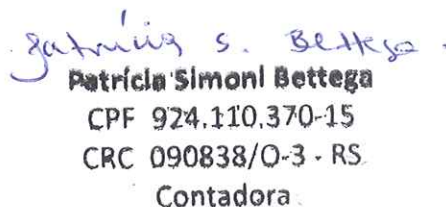 Patrícia S. Bettega
Patrícia Simoni Bettega
CPF 924.110.370-15
CRC 090838/O-3 - RS
Contadora